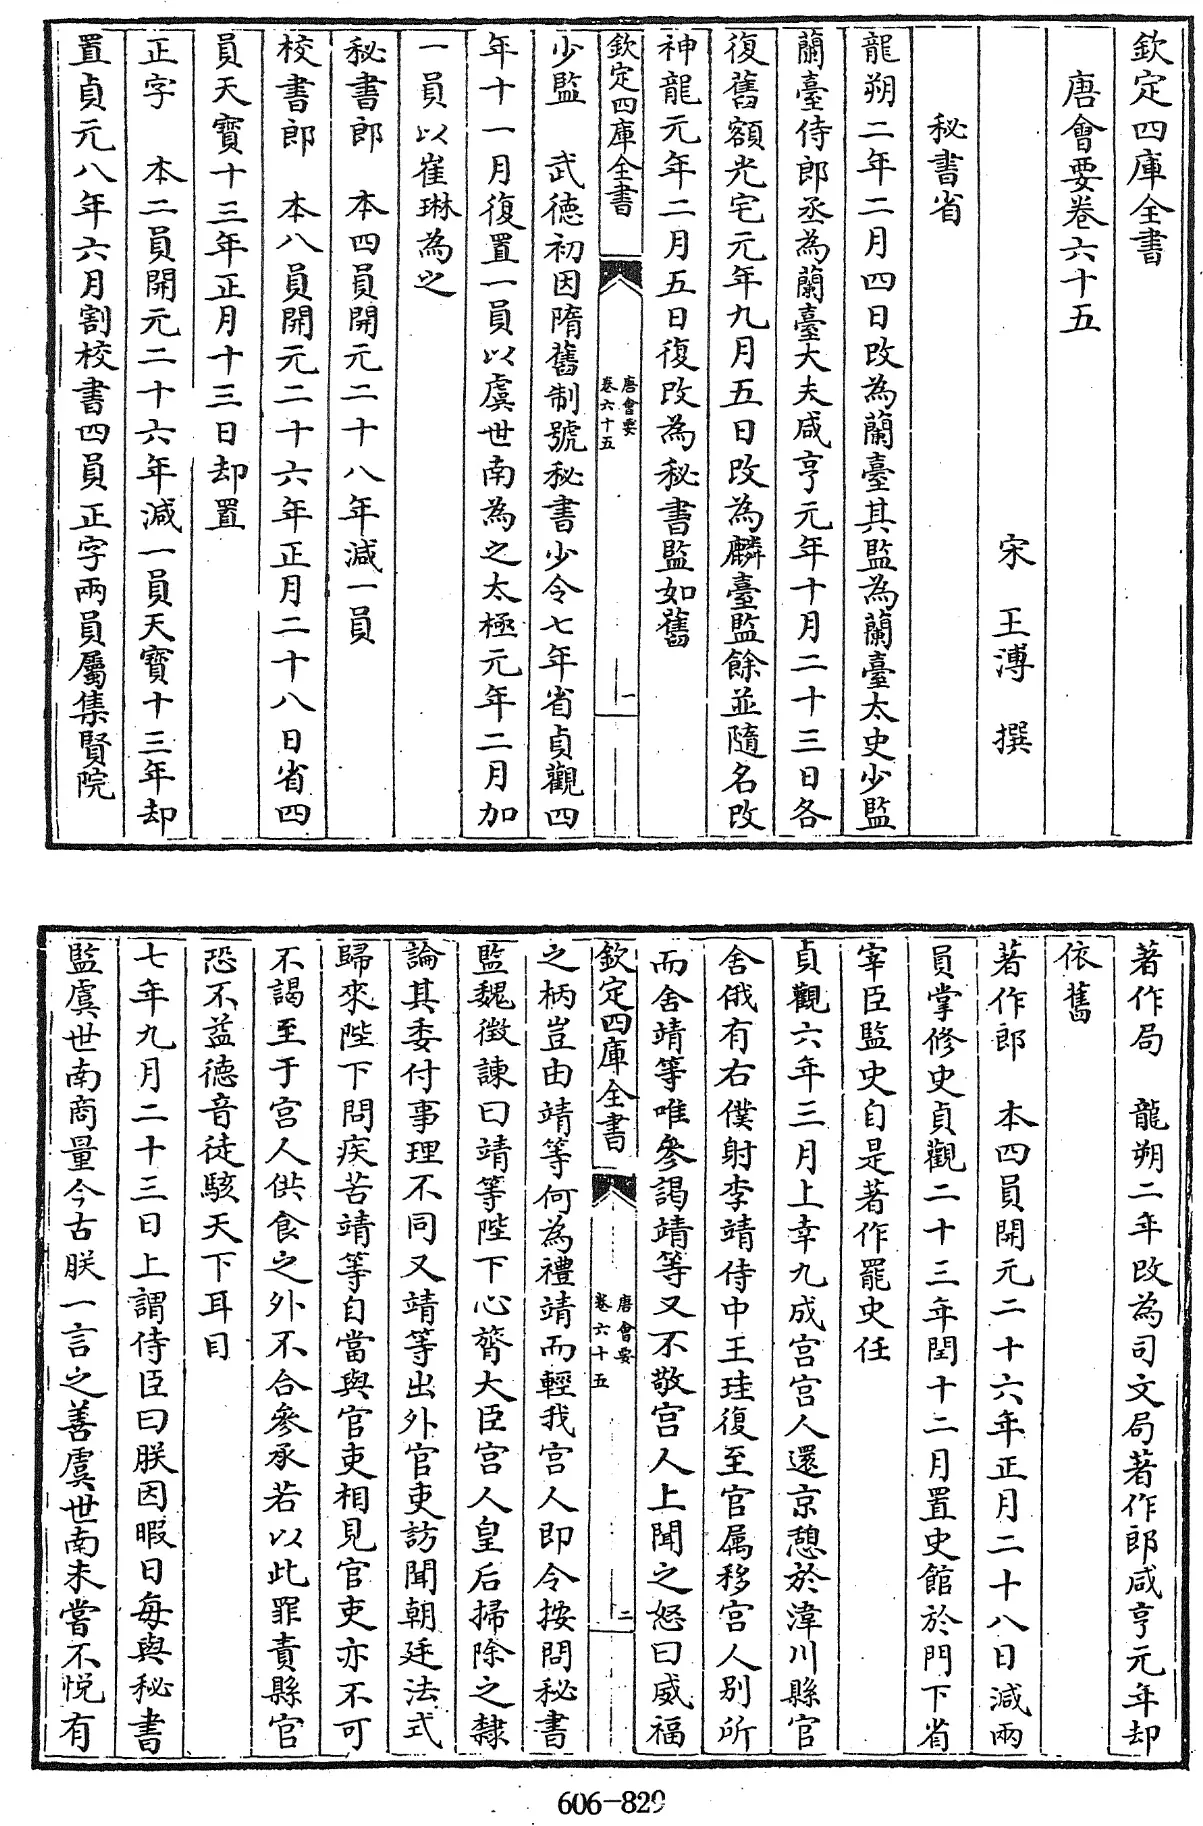 欽定四庫全書
唐會要卷六十五
宋 王溥 撰
秘書省
龍朔二年二月四日改為蘭臺其監為蘭臺太史少監
蘭臺侍郎丞為蘭臺大夫咸亨元年十月二十三日各
復舊額光宅元年九月五日改為麟臺監餘並隨名改
神龍元年二月五日復改為秘書監如舊
欽定四庫全書
唐會要
卷六十五
一
少監 武徳初因隋舊制號秘書少令七年省貞觀四
年十一月復置一員以虞世南為之太極元年二月加
一員以崔琳為之
秘書郎 本四員開元二十八年減一員
校書郎 本八員開元二十六年正月二十八日省四
員天寶十三年正月十三日却置
正字 本二員開元二十六年減一員天寶十三年却
置貞元八年六月割校書四員正字兩員屬集賢院
著作局 龍朔二年改為司文局著作郎咸亨元年却
依舊
著作郎 本四員開元二十六年正月二十八日減兩
員掌修史貞觀二十三年閏十二月置史館於門下省
宰臣監史自是著作罷史任
貞觀六年三月上幸九成宫宫人還京憩於湋川縣官
舍俄有右僕射李靖侍中王珪復至官属移宫人别所
而舍靖等唯參謁靖等又不敬宫人上聞之怒曰威福
欽定四庫全書
唐會要
卷六十五
二
之柄豈由靖等何為禮靖而輕我宫人即令按問秘書
監魏徵諫曰靖等陛下心膂大臣宫人皇后掃除之隸
論其委付事理不同又靖等出外官吏訪聞朝廷法式
歸來陛下問疾苦靖等自當與官吏相見官吏亦不可
不謁至于宫人供食之外不合參承若以此罪責縣官
恐不益徳音徒駭天下耳目
七年九月二十三日上謂侍臣曰朕因暇日每與秘書
監虞世南商量今古朕一言之善虞世南未嘗不悦有
606-829